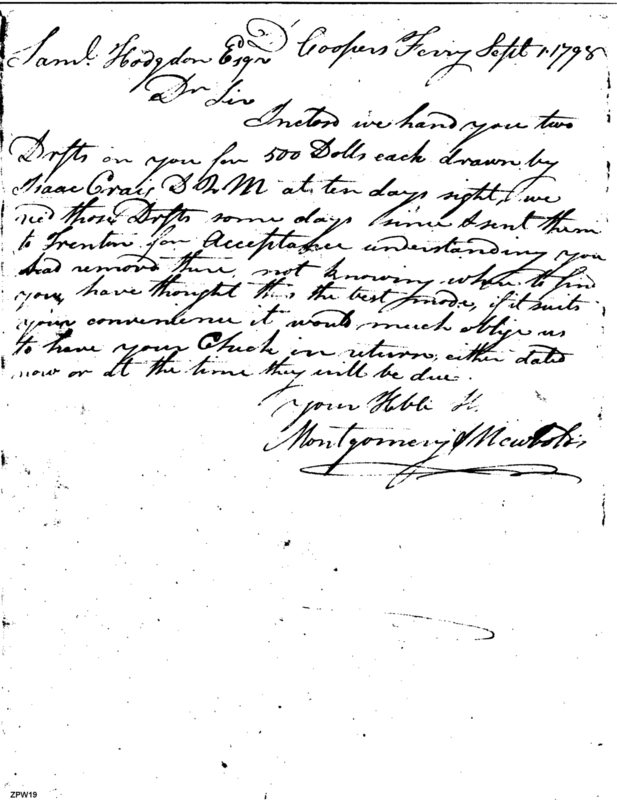 Saml. Hodgdon Esqr Coopers Ferry Sept 1. 1798
Dr Sir
Inclosd we hand you two
Drfts on you for 500 Dolls each drawn by
Isaac Craig D Q M at ten days sight, we
red those Drfts some days since & sent them
to Trenton for Acceptance understanding you
had removed there, not knowing where to find
you, have thought this the best mode, if it suits
your convenience it would much oblige us
to have your Check in return, either dated
now or at the time they will be due.
your Hble
Montgomery & Newbolds
ZPW19